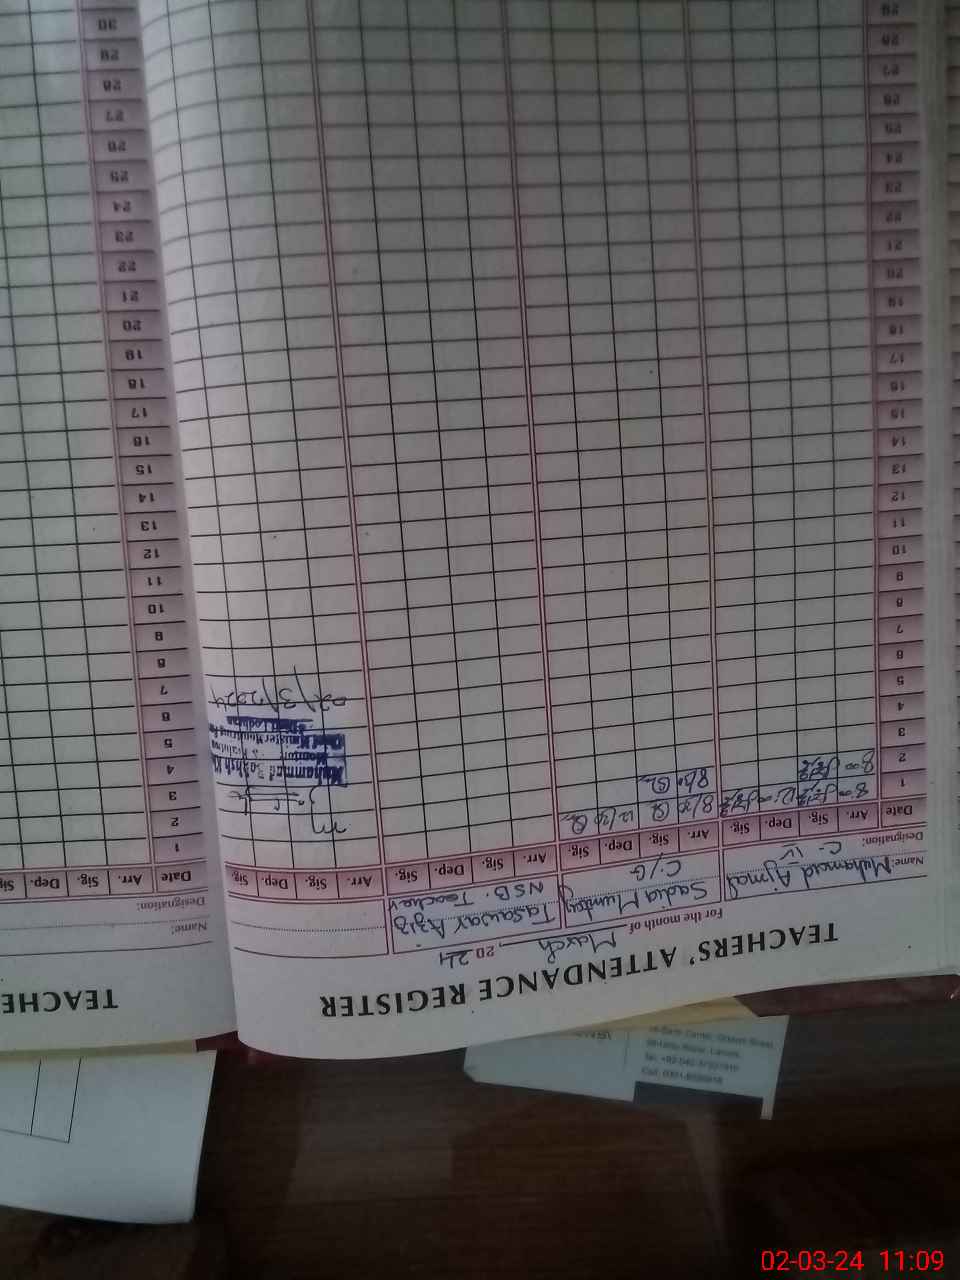 TEACHERS' ATTENDANCE REGISTER
For the month of March, 2024
Name: Muhammad Ajmal
Sadia Mumtaz
Tasawar Aziz
Designation: C-IV
C/G
NSB. Teacher
Date Arr. Sig. Dep. Sig. Arr. Sig. Dep. Sig. Arr. Sig. Dep. Sig. Arr. Sig. Dep. Sig.
1 8:00 12:00 8/30 12/30
2 8:00 8/30
3
4
5
6
7
8
9
10
11
12
13
14
15
16
17
18
19
20
21
22
23
24
25
26
27
28
29
Muhammad Bakhsh
02/3/2024
TEACHE
Name:
Designation:
Date Arr. Sig. Dep. Sig
1
2
3
4
5
6
7
8
9
10
11
12
13
14
15
16
17
18
19
20
21
22
23
24
25
26
27
28
29
30
02-03-24 11:09